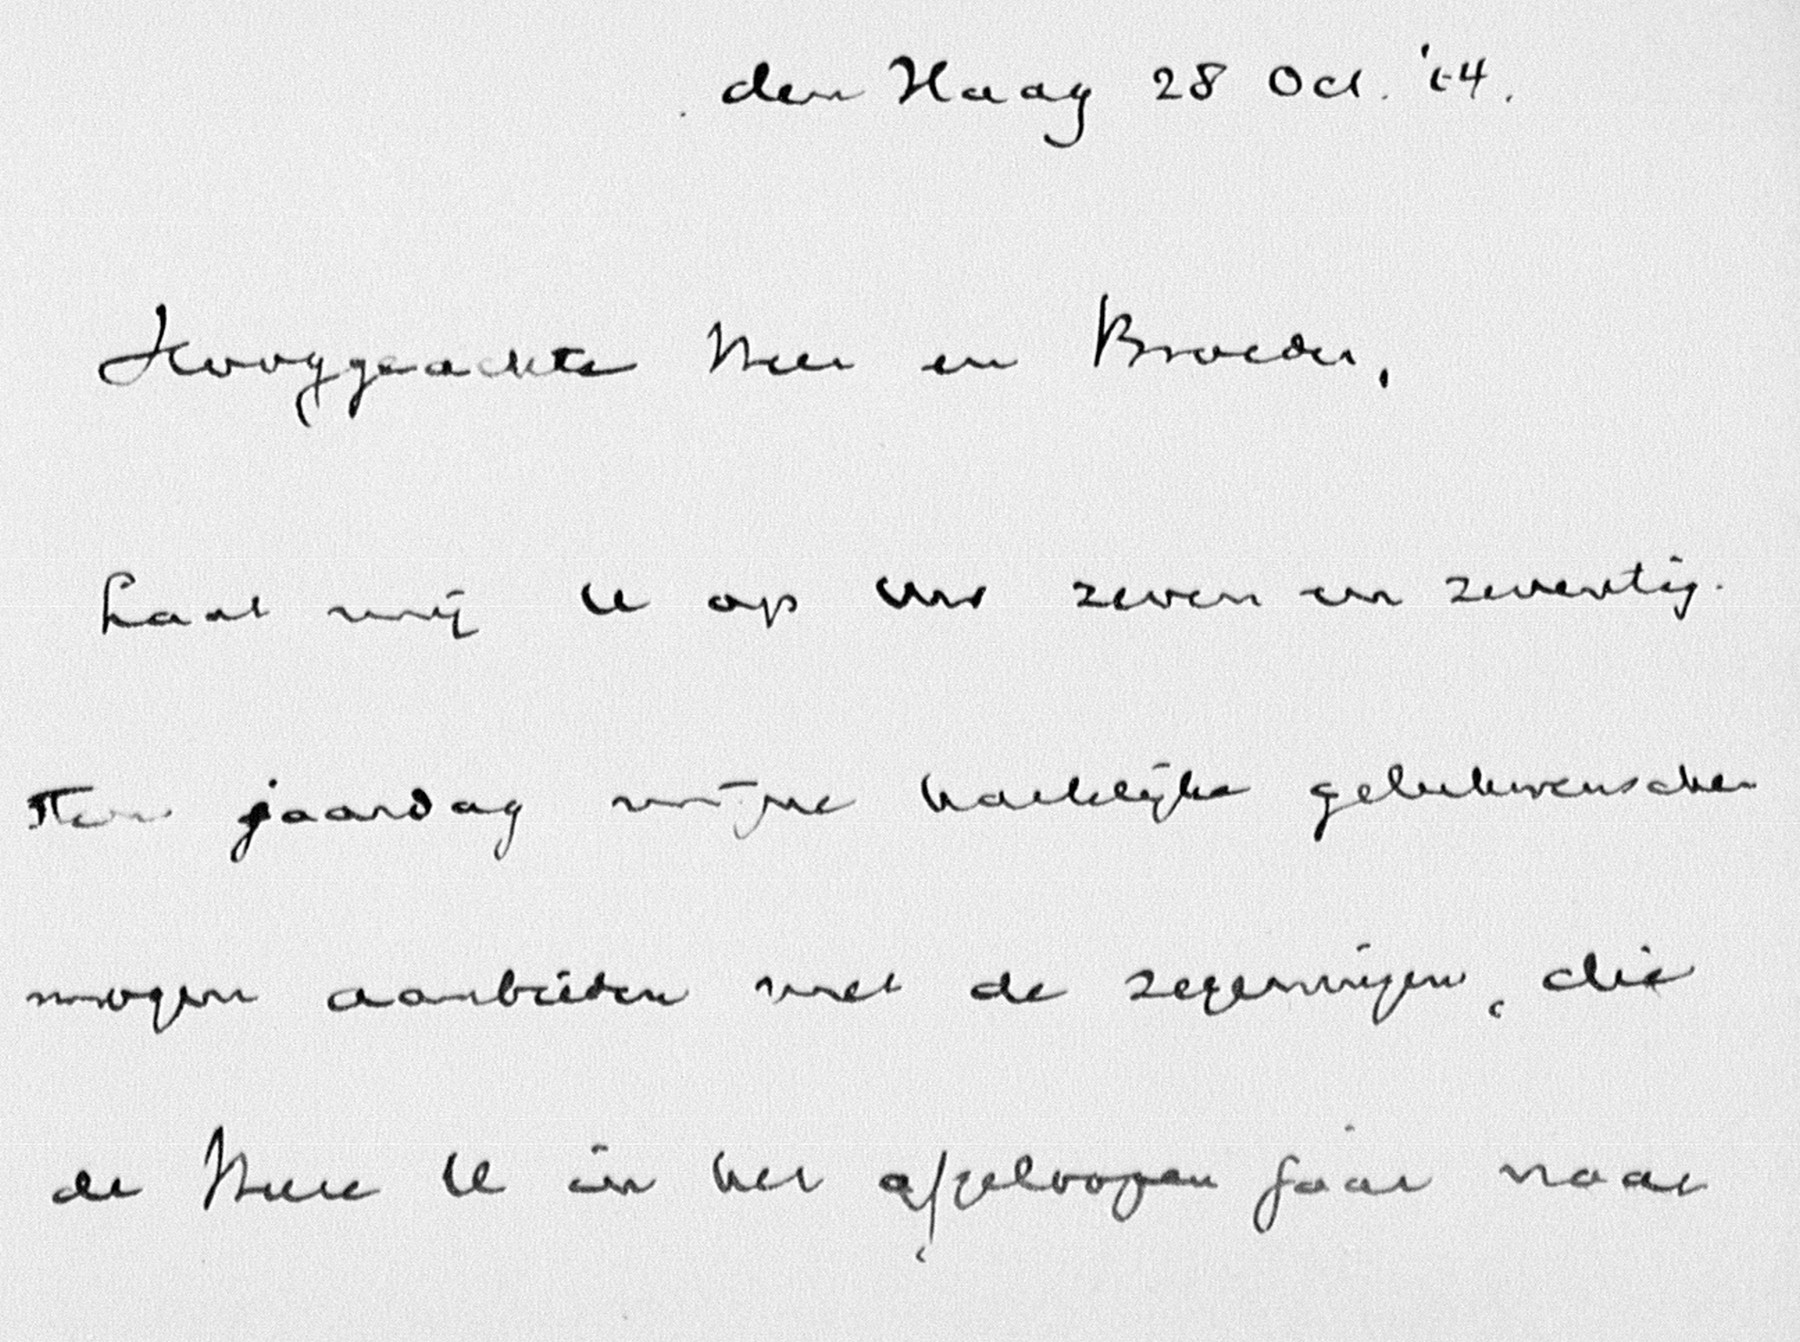 den Haag 28 Oct. '14.
Hooggeachte Heer en Broeder,
Laat mij U op Uw zeven en zeventig-
sten jaardag mijne hartelijke gelukwenschen
mogen aanbieden met de zegeningen, die
de Heere U in het afgeloopen jaar naar